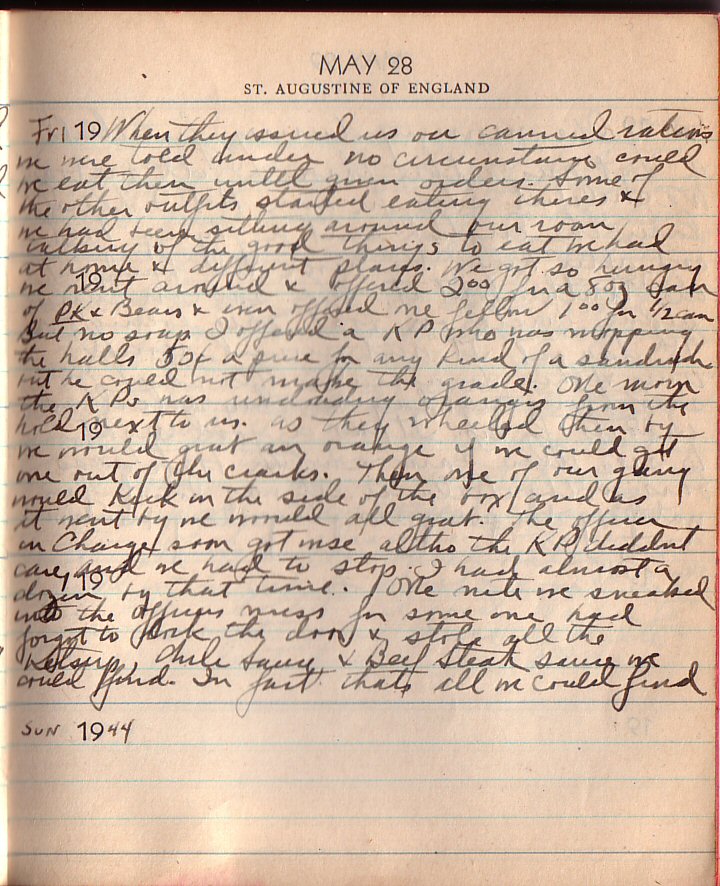 MAY 28
ST. AUGUSTINE OF ENGLAND
Fri 19 When they issued us our canned rations
we were told under no circumstance could
we eat them until given orders. Some of
the other outfits started eating theres &
we had been sitting around our room
talking of the good things to eat we had
at home & different places. We got so hungry
19
we went around & offered 2 00 for a 8 oz can
of PK & Beans & even offered one fellow 1 00 for 1/2 can
But no soap I offered a KP who was mopping
the halls 50¢ a piece for any kind of a sandwich
but he could not make the grade. One morn
the KPs was unloading oranges from the
19
hold next to us. as they wheeled them by
we would grab an orange if we could get
one out of the cracks. Then one of our gang
would kick in the side of the box and as
it went by we would all grab. The officer
in charge soon got wise altho the KPs diddnt
care and we had to stop. I had almost a
19
dozen by that time. One nite we sneaked
into the officers mess for some one had
forgot to lock the door & stole all the
Ketsup, chile sauce & Beef Steak sauce we
could find. In fact thats all we could find
SUN 1944